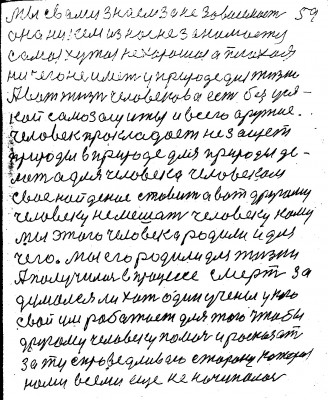 мы с вами знаем за независимост 59
она ничем из нас не занимаету
самая хужая не хорошая а плохая
ничего не имет и природе для жизни
А вот жить человекова ест без уся-
кой самозащиты и всего оружие.
человек прокладает не защет
природы в природе для природы де-
лота для человека человеком
свое найденое ставит а вот другому
человеку не мешат человеку кому
мы этого человека родили и для
чего. мы его родили для жизни
А получился в процессе смерт за
думался ли хоть один ученый у кого
свой ум работает для того чтобы
другому человеку помоч и росказат
за ту справедливаю сторону которая
нами всеми еще не начиналас